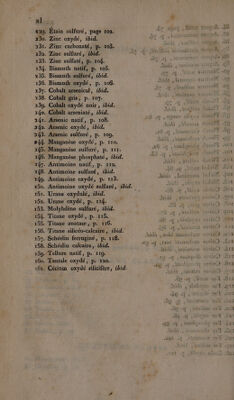 xl
229. Étain sulfuré, page 102.
230. Zinc oxydé, ibid.
231. Zinc carbonaté, p. 103.
232. Zinc sulfuré, ibid.
233. Zinc sulfaté, p. 104.
234. Bismuth natif, p. 105.
235. Bismuth sulfuré, ibid.
236. Bismuth oxydé, p. 106.
237. Cobalt arsenical, ibid.
238. Cobalt gris, p. 107.
239. Cobalt oxydé noir, ibid.
240. Cobalt arseniaté, ibid.
241. Arsenic natif, p. 108.
242. Arsenic oxydé, ibid.
243. Arsenic sulfuré, p. 109.
244. Manganèse oxydé, p. 110.
245. Manganèse sulfuré, p. 111.
246. Manganèse phosphaté, ibid.
247. Antimoine natif, p. 112.
248. Antimoine sulfuré, ibid.
249. Antimoine oxydé, p. 113.
250. Antimoine oxydé sulfuré, ibid.
251. Urane oxydulé, ibid.
252. Urane oxydé, p. 114.
253. Molybdène sulfuré, ibid.
254. Titane oxydé, p. 115.
255. Titane anatase, p. 116.
256. Titane siliceo-calcaire, ibid.
257. Schéelin ferruginé, p. 118.
258. Schéelin calcaire, ibid.
259. Tellure natif, p. 119.
260. Tantale oxydé, p. 120.
261. Cérium oxydé silicifère, ibid.